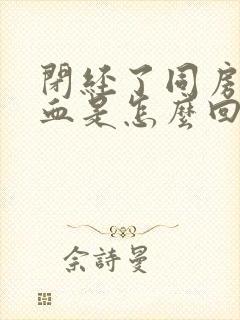 閉經了同房
血是怎麼回
佘詩曼